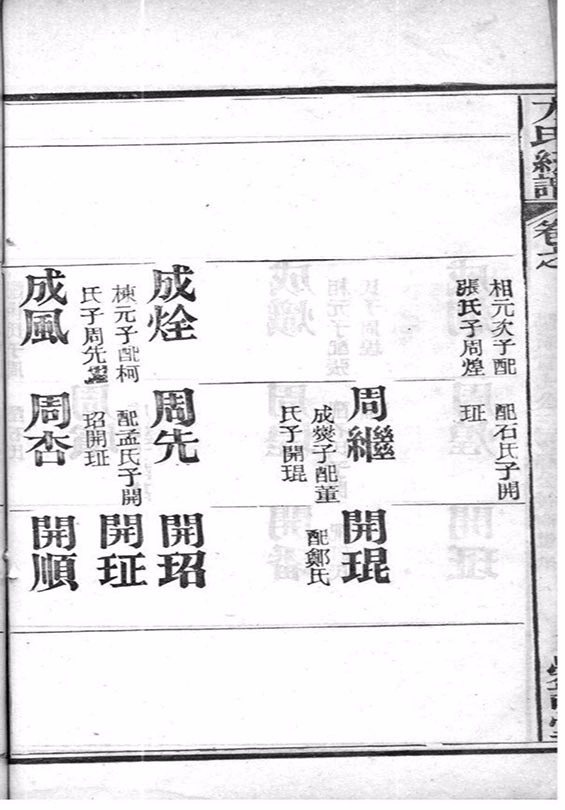 氏統譜
卷之
相元次子配
張氏子周煌
成烇
棟元子配柯
氏子周先
成風
配石氏子開
周繼
成爕子配董
氏子開琨
周先
配孟氏子開
玿開
周杏
開琨
配鄭氏
開玿
開
開順